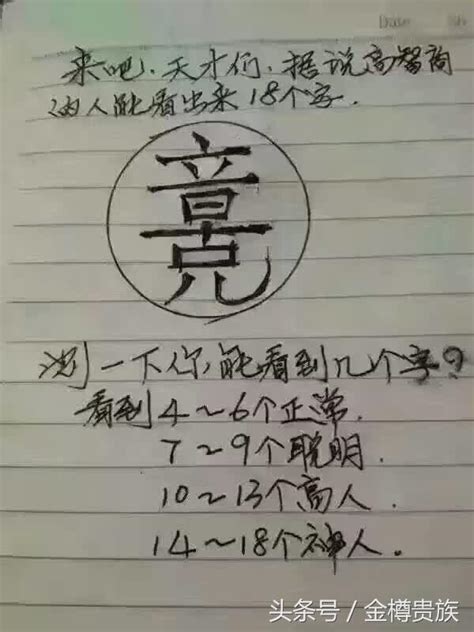 Date
来吧.天才们.据说高智商
的人能看出来18个字.
测一下你,能看到几个字?
看到4~6个正常.
7~9个聪明.
10~13个高人.
14~18个神人.
头条号／金樽贵族